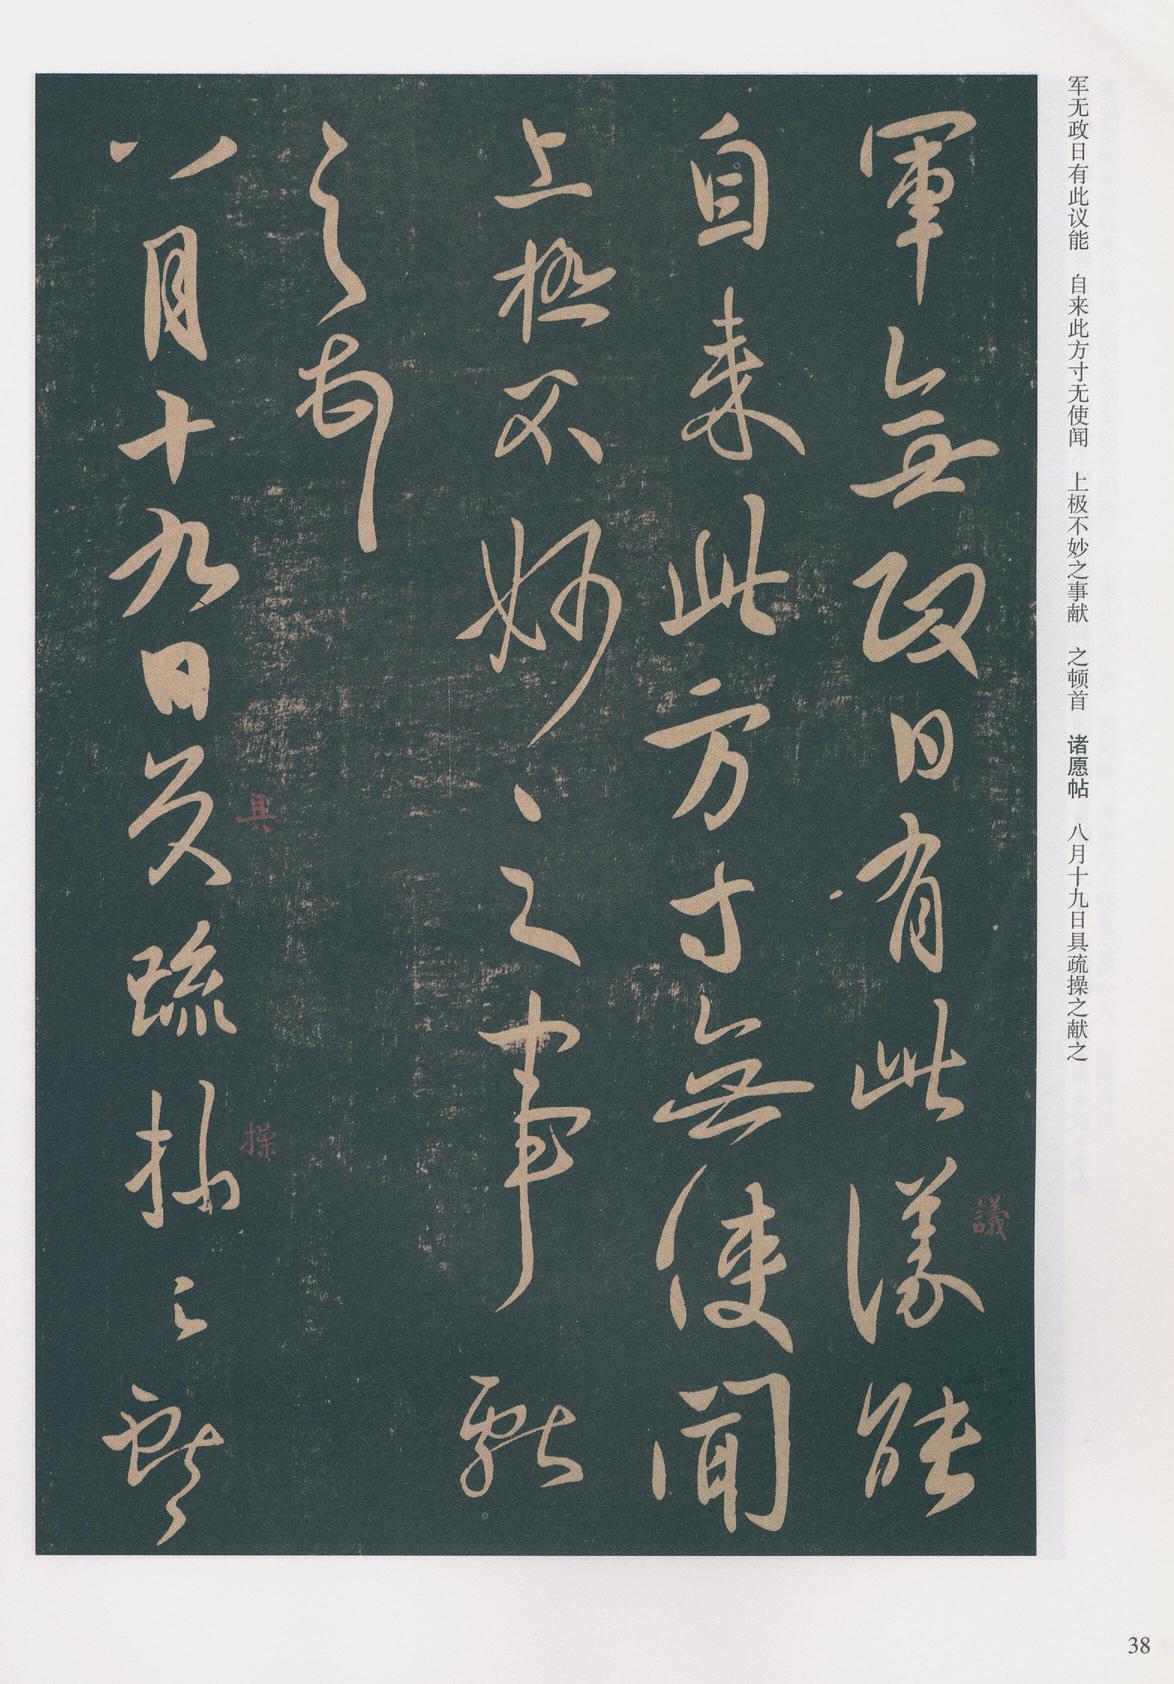 军无政日有此议能　自来此方寸无使闻　上极不妙之事献　之顿首　诸愿帖　八月十九日具疏操之献之
軍無政日有此議能
議
自来此方寸無使聞
上極不妙之事献
之頓首
八月十九日具疏操之献
具
操
38